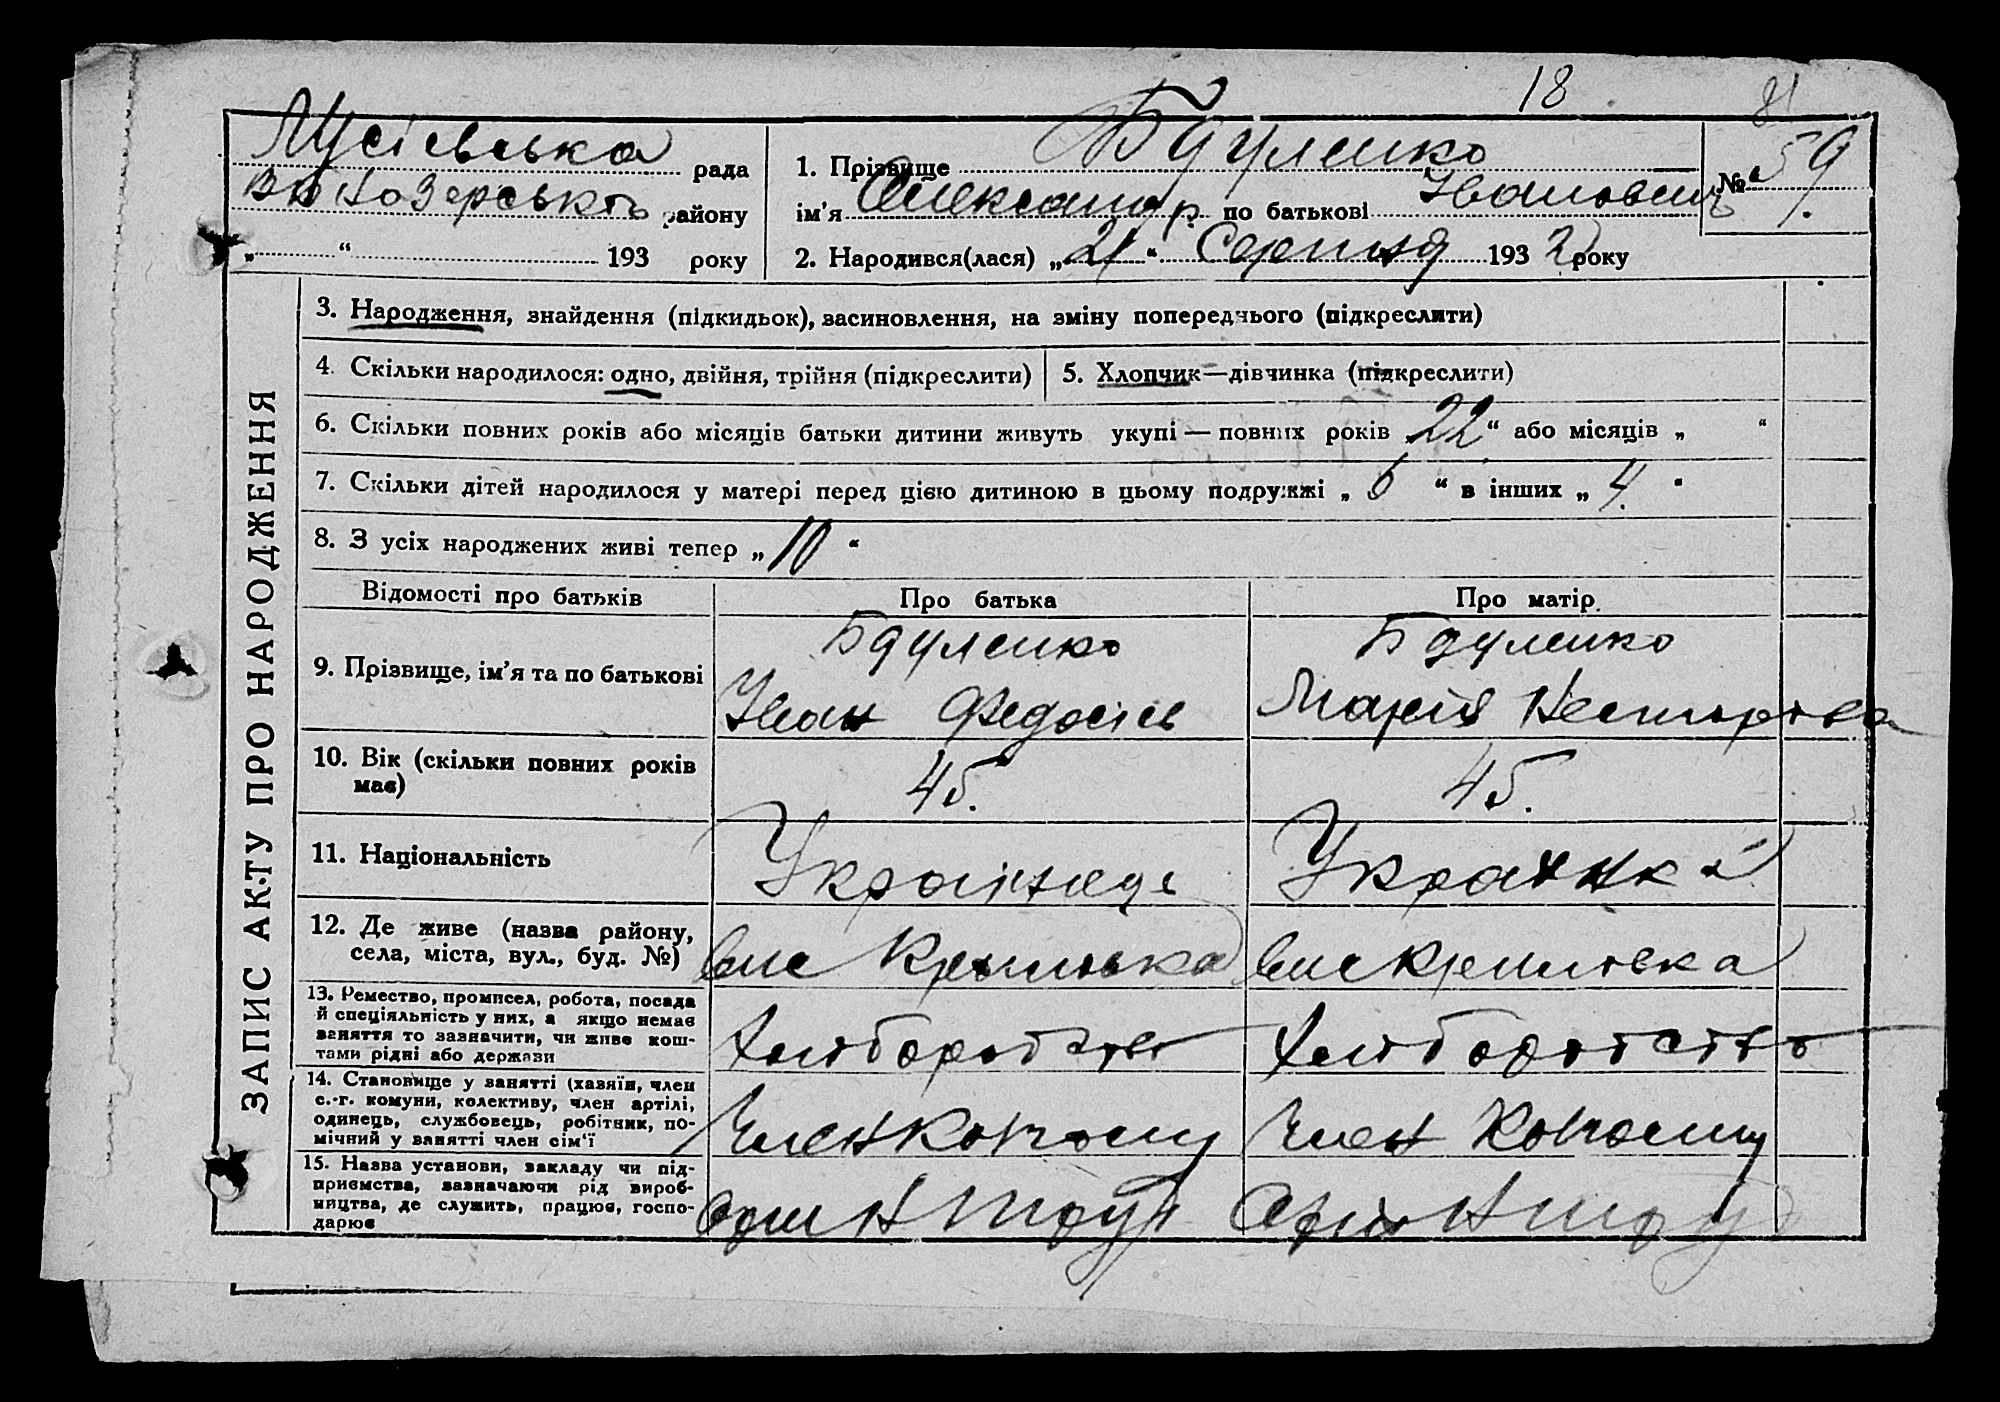 18
81
Мусіевська рада
Білозерського району
„ “ 193 року
1. Прізвище Бдуленко
ім'я Олександр по батькові Іванович
№ 59
2. Народився(лася) „21“ Серпня 1932 року
ЗАПИС АКТУ ПРО НАРОДЖЕННЯ
3. Народження, знайдення (підкидьок), засиновлення, на зміну попереднього (підкреслити)
4. Скільки народилося: одно, двійня, трійня (підкреслити)
5. Хлопчик—дівчинка (підкреслити)
6. Скільки повних років або місяців батьки дитини живуть укупі — повних років „22“ або місяців „ “
7. Скільки дітей народилося у матері перед цією дитиною в цьому подружжі „6“ в інших „4“
8. З усіх народжених живі тепер „10“
Відомості про батьків
Про батька
Про матір
9. Прізвище, ім'я та по батькові
Бдуленко
Іван Федосіев
Бдуленко
Марія Несторова
10. Вік (скільки повних років
має)
45.
45.
11. Національність
Українець
Українка
12. Де живе (назва району,
села, міста, вул., буд. №)
13. Ремество, промисел, робота, посада
й спеціяльність у них, а якщо немає
заняття то зазначити, чи живе кош-
тами рідні або держави
Хліборобство
Хліборобство
14. Становище у занятті (хазяїн, член
с.-г. комуни, колективу, член артілі,
одинець, службовець, робітник, по-
мічний у занятті член сім'ї
Член колгоспу
Член колгоспу
15. Назва установи, закладу чи під-
приємства, зазначаючи рід вироб-
ництва, де служить, працює, госпо-
дарює